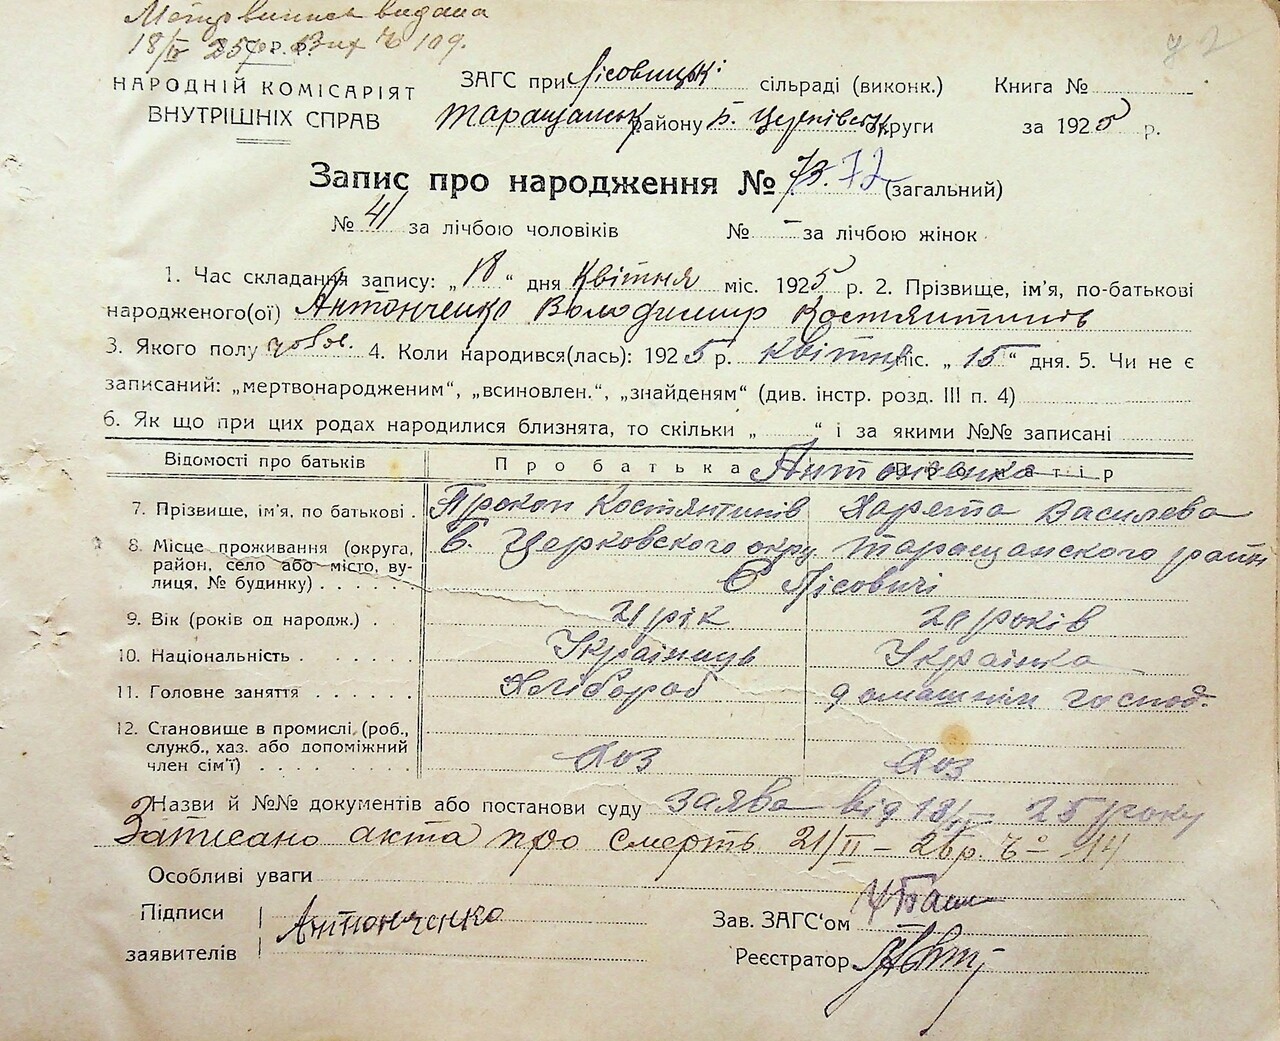 Метр. випись видана
18/IV 25 р. Вих Ч 109.
72
НАРОДНІЙ КОМІСАРІЯТ ЗАГС при Лісовицькі сільраді (виконк.) Книга №
ВНУТРІШНІХ СПРАВ Таращанськ району Б. Церківськ округи за 1925 р.
Запис про народження № 73. 72 (загальний)
№ 41 за лічбою чоловіків № - за лічбою жінок
1. Час складання запису: „18“ дня Квітня міс. 1925 р. 2. Прізвище, ім'я, по-батькові
народженого(ої) Антонченко Володимир Костянтинів
3. Якого полу чолов. 4. Коли народився(лась): 1925 р. Квітня міс. „15“ дня. 5. Чи не є
записаний: „мертвонародженим“, „всиновлен.“, „знайденям“ (див. інстр. розд. III п. 4)
6. Як що при цих родах народилися близнята, то скільки „ “ і за якими №№ записані
Відомості про батьків Про батька Антоненко Про матір
7. Прізвище, ім'я, по батькові . Прокоп Костянтинів Харета Василева
8. Місце проживання (округа, Б. Церковского окру Таращанского райн
район, село або місто, ву-
лиця, № будинку) . . . . . С Лісовичі
9. Вік (років од народж.) . 21 рік 20 років
10. Національність . . . . . Українець Українка
11. Головне заняття . . . . . . Хлібороб домашнім господ.
12. Становище в промислі, (роб.,
служб., хаз. або допоміжний
член сім'ї) . . . . . . . . . хоз хоз
Назви й №№ документів або постанови суду заява від 18/IV 25 року
Записано акта про смерть 21/II – 26 р. Ч° 14
Особливі уваги
Підписи Антонченко Зав. ЗАГС'ом
заявителів Реєстратор